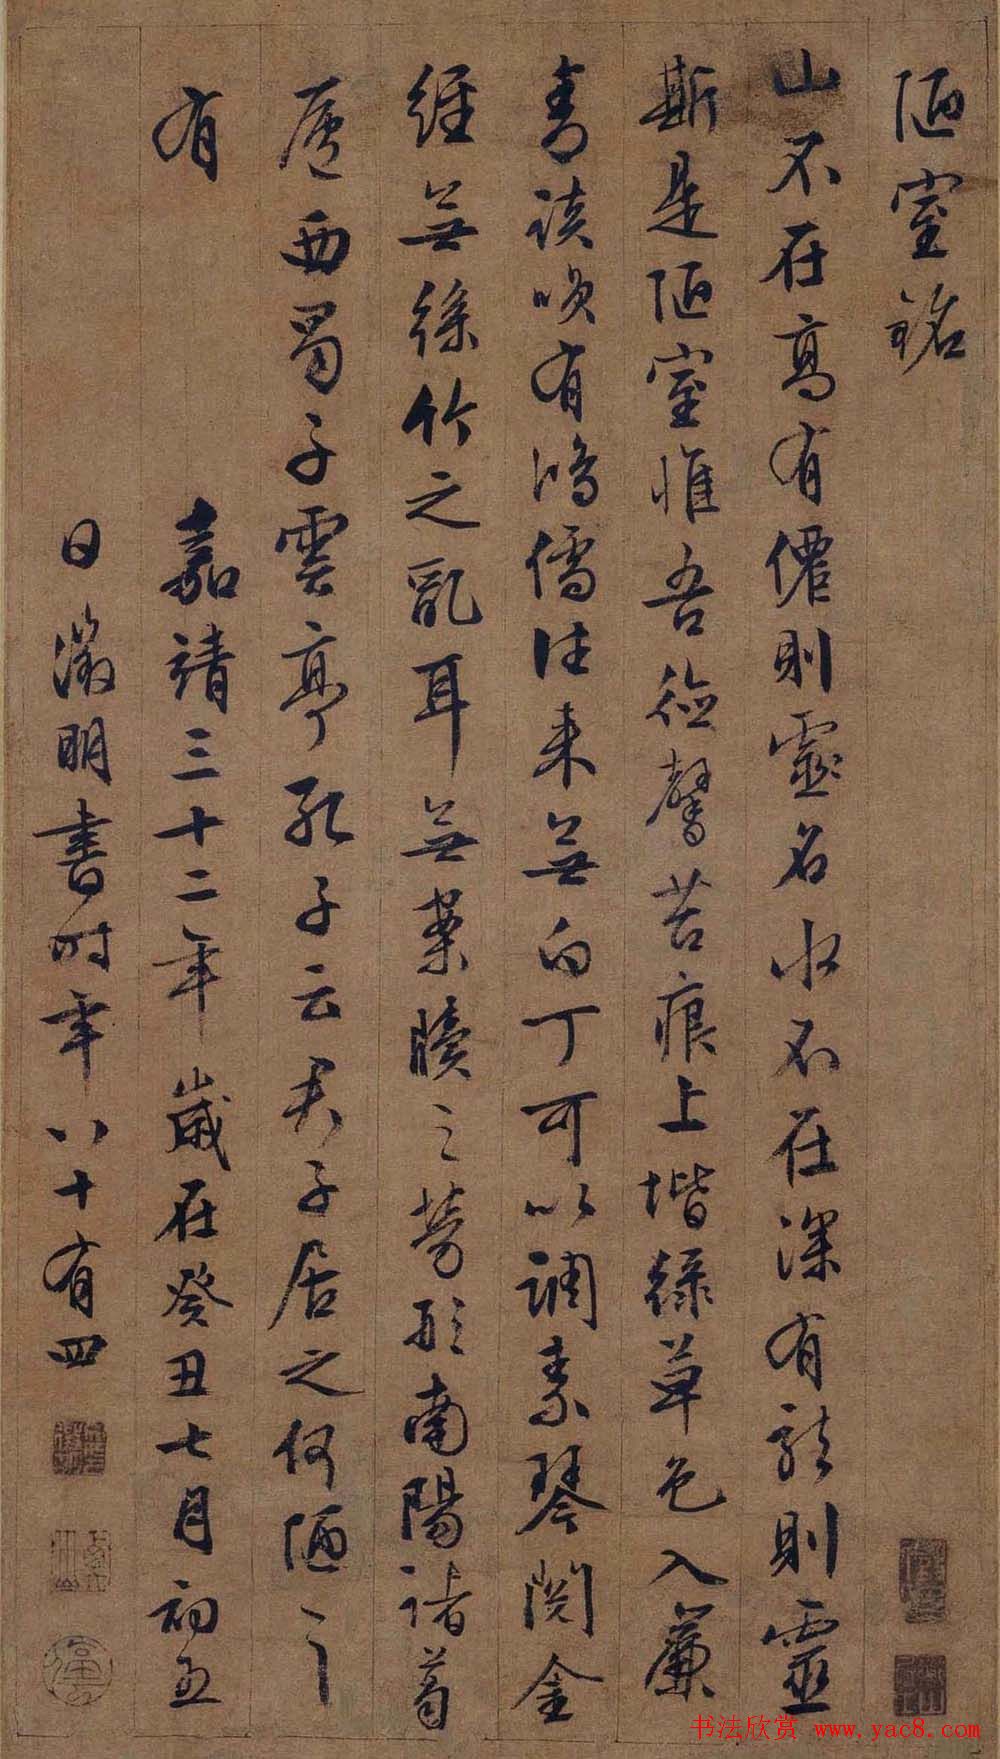 陋室銘
山不在高有僊則靈名水不在深有龍則靈
斯是陋室惟吾德馨苔痕上堦綠草色入簾
青談咲有鴻儒往來無白丁可以調素琴閱金
經無絲竹之亂耳無案牘之勞形南陽諸葛
廬西蜀子雲亭孔子云君子居之何陋之
有
嘉靖三十二年歲在癸丑七月初五
日徵明書時年八十有四
书法欣赏 www.yac8.com